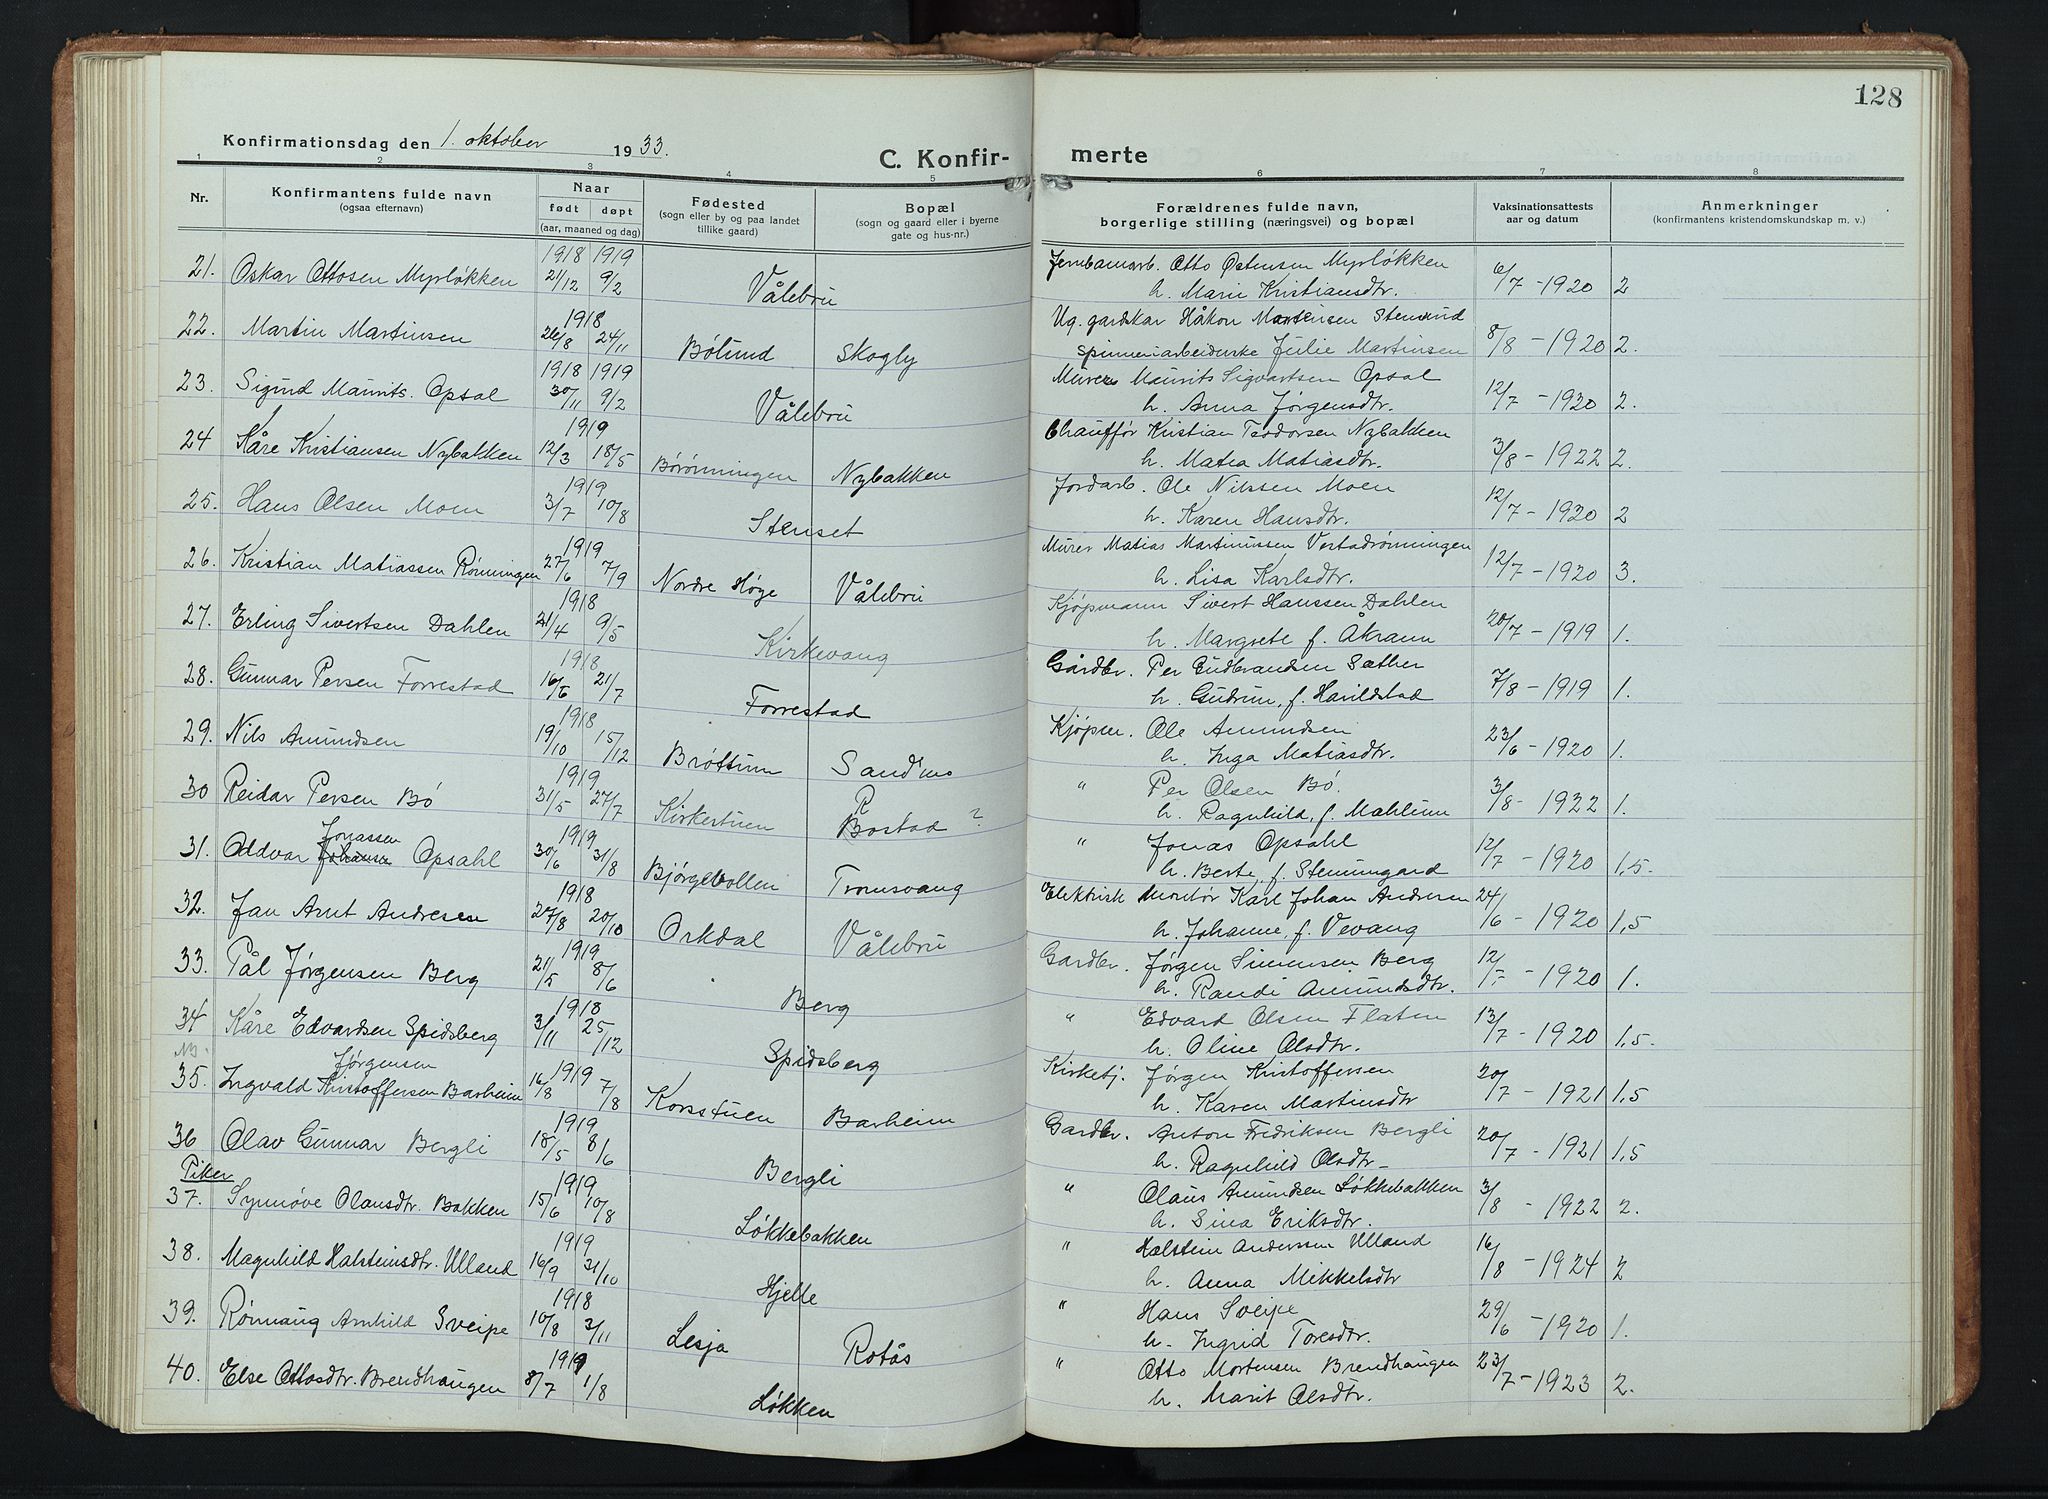 128
Konfirmationsdag den 1. oktober 1933.
C. Konfir-merte
1 2 3 4 5 6 7 8
Nr. Konfirmantens fulde navn (ogsaa efternavn) Naar født døpt (aar, maaned og dag) Fødested (sogn eller by og paa landet tillike gaard) Bopæl (sogn og gaard eller i byerne gate og hus-nr.) Forældrenes fulde navn, borgerlige stilling (næringsvei) og bopæl Vaksinationsattests aar og datum Anmerkninger (konfirmantens kristendomskundskap m. v.)
1918 1919
21. Oskar Ottosen Myrløkken 21/12 9/2 Vålebru Jernbanearb. Otto Østensen Myrløkken
h. Marie Kristiansdtr. 6/7 - 1920 2
1918
22. Martin Martinsen 26/8 24/11 Bølund Skogly Ug. gardskar Håkon Martinsen Stensrud
spinneriarbeiderske Julie Martinsen 8/8 - 1920 2.
1918 1919
23. Sigurd Maurits. Opsal 30/11 9/2 Vålebru Murer Maurits Sigvartsen Opsal
h. Anna Jørgensdtr. 12/7 - 1920 2.
1919
24 Kåre Kristiansen Nybakken 12/3 18/5 Børønningen Nybakken Chauffør Kristian Teodorsen Nybakken
h. Matea Matiasdtr. 3/8 - 1922 2.
1919
25. Hans Olsen Moen 3/7 10/8 Stenset Jordarb. Ole Nilssen Moen
h. Karen Hansdtr. 12/7 - 1920 2
1919
26. Kristian Matiassen Rønningen 27/6 7/9 Nordre Høge Vålebru Murer Matias Martinussen Vestadrønningen
h. Lisa Karlsdtr. 12/7 - 1920 3.
1918
27. Erling Sivertsen Dahlen 21/4 9/5 Kirkevang Kjøpmann Sivert Hanssen Dahlen
h. Margrete f. Åkrann 20/7 - 1919 1.
1918
28. Gunnar Persen Forrestad 16/6 21/7 Forrestad Gårdbr. Per Gudbrandsen Sæther
h. Gudrun, f. Harildstad 7/8 - 1919 1.
1918
29. Nils Amundsen 19/10 15/12 Brøttum Sandmo Kjøpm. Ole Amundsen
h. Inga Matiasdtr. 23/6 - 1920 1.
1919
30 Reidar Persen Bø 31/5 27/7 Kirkestuen R Bostad ? " Per Olsen Bø.
h. Ragnhild, f. Mæhlum 3/8 - 1922 1.
Jonassen 1919
31. Oddvar Johansen Opsahl 30/6 31/8 Bjørgevollen Tromsvang " Jonas Opsahl
h. Berte, f. Stenumgard 12/7 - 1920 1,5.
1918
32. Jan Arnt Andresen 27/8 20/10 Orkdal Vålebru Elektrisk montør Karl Johan Andresen
h. Johanne, f. Vevang 24/6 - 1920 1,5
1919
33. Pål Jørgensen Berg 21/5 8/6 Berg Gardbr. Jørgen Simensen Berg
h. Randi Amundsdtr. 12/ - 1920 1.
1918
34 Kåre Edvardsen Spidsberg 3/11 25/12 Spidsberg " Edvard Olsen Flaten
h. Oline Olsdtr. 13/7 - 1920 1,5.
NB. Jørgensen 1919
35. Ingvald Kristoffersen Barheim 16/8 7/8 Korsstuen Barheim Kirketj. Jørgen Kristoffersen
h. Karen Martinsdtr 20/7 - 1921 1,5
1919
36 Olav Gunnar Bergli 18/5 8/6 Bergli Gardbr. Anton Fredriksen Bergli
h. Ragnhild Olsdtr. 20/7 - 1921 1,5
Piker 1919
37. Synnøve Olausdtr. Bakken 15/6 10/8 Løkkebakken " Olaus Amundsen Løkkebakken
h. Sina Eriksdtr. 3/8 - 1922 2.
1919
38. Magnhild Halsteinsdtr. Ulland 16/9 31/10 Hjelle " Halstein Anderssen Ulland
h. Anna Mikkelsdtr 16/8 - 1924 2
1918
39. Rønnaug Arnhild Sveipe 10/8 3/11 Lesja Rotås " Hans Sveipe
h. Ingrid Toresdtr. 29/6 - 1920 1.
1919
40. Else Ottosdtr. Brendhaugen 8/7 1/8 Løkken " Otto Mortensen Brendhaugen
h. Marit Olsdtr. 23/7 - 1923 2.